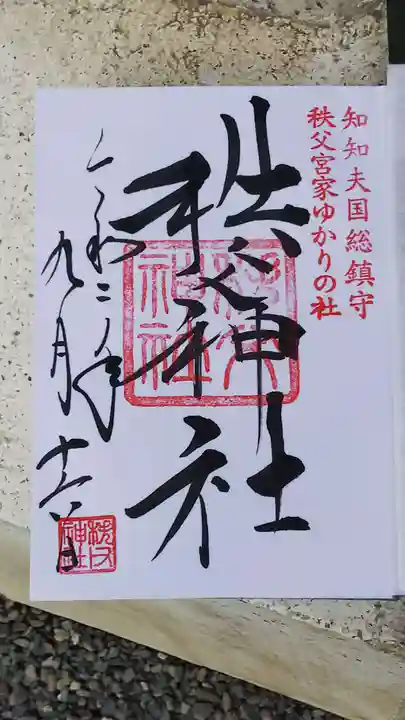 知知夫国総鎮守
秩父宮家ゆかりの社
秩父神社
秩父神社
令和二年
九月十六日
秩父神社